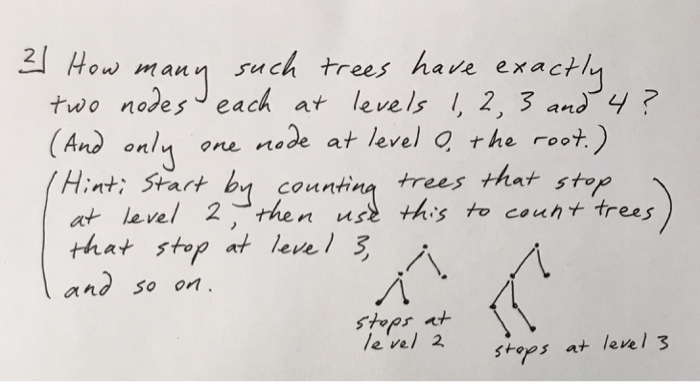 2) How many such trees have exactly
two nodes each at levels 1, 2, 3 and 4?
(And only one node at level 0, the root.)
(Hint: Start by counting trees that stop
at level 2, then use this to count trees)
that stop at level 3,
and so on.
stops at
level 2
stops at level 3